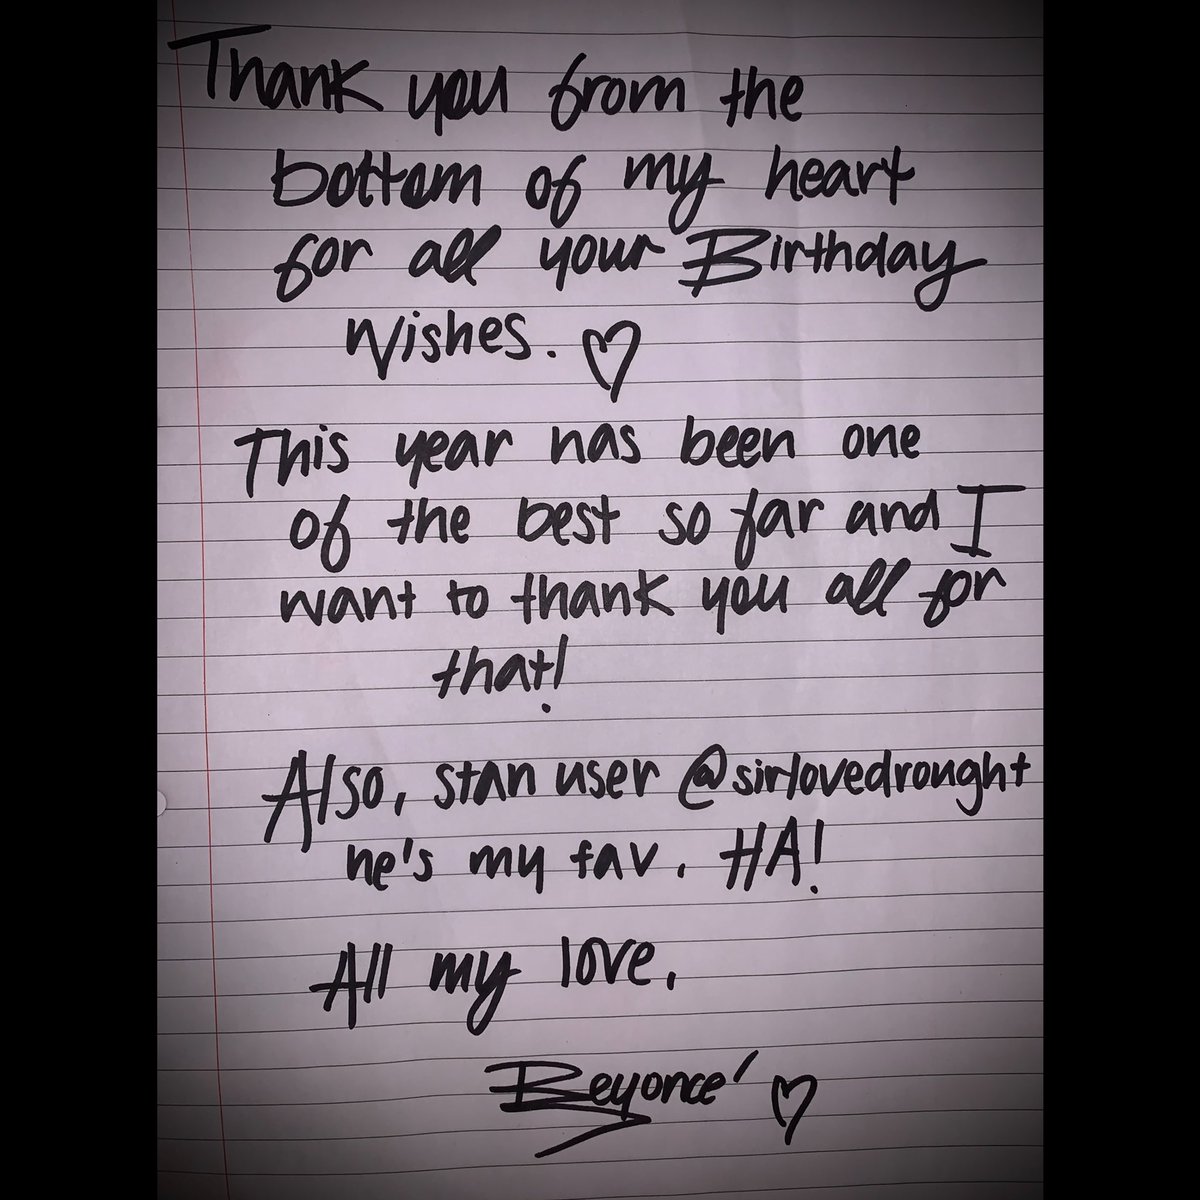 Thank you from the
bottom of my heart
for all your Birthday
Wishes. ♡
This year has been one
of the best so far and I
want to thank you all for
that!
Also, stan user @sirlovedrought
he's my fav. HA!
All my love,
Beyoncé ♡